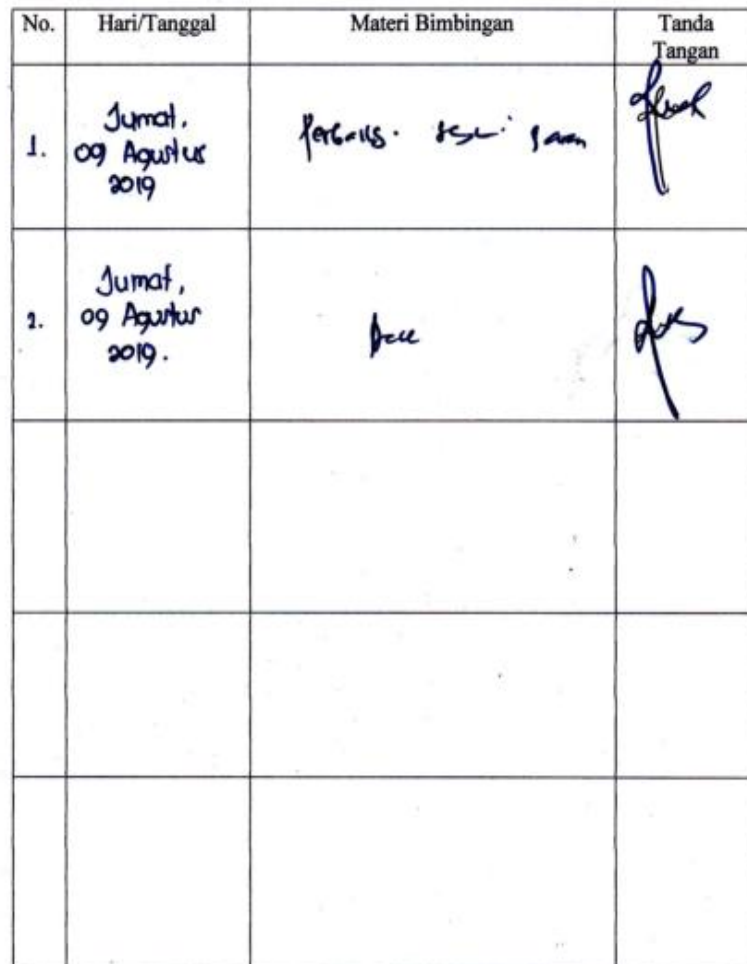 No. Hari/Tanggal Materi Bimbingan Tanda
Tangan
Jumat,
1. 09 Agustus Perbaiki sesuai saran
2019
Jumat,
2. 09 Agustus
2019.